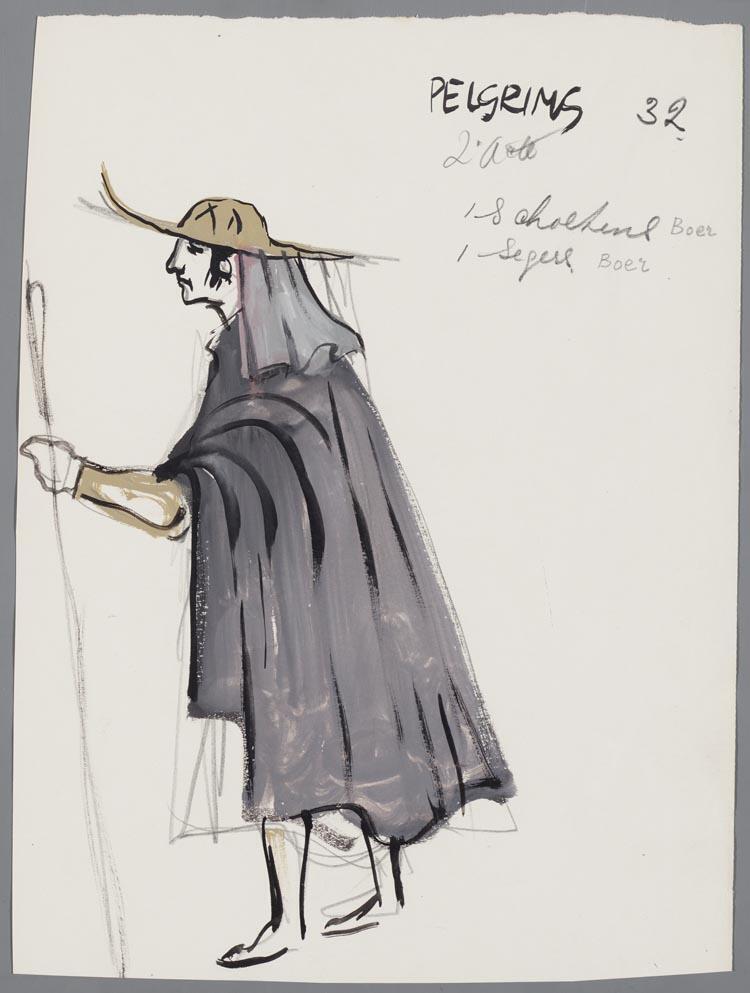 PELGRIMS 32
2e Acte
1 Scholtens Boer
1 Segers Boer